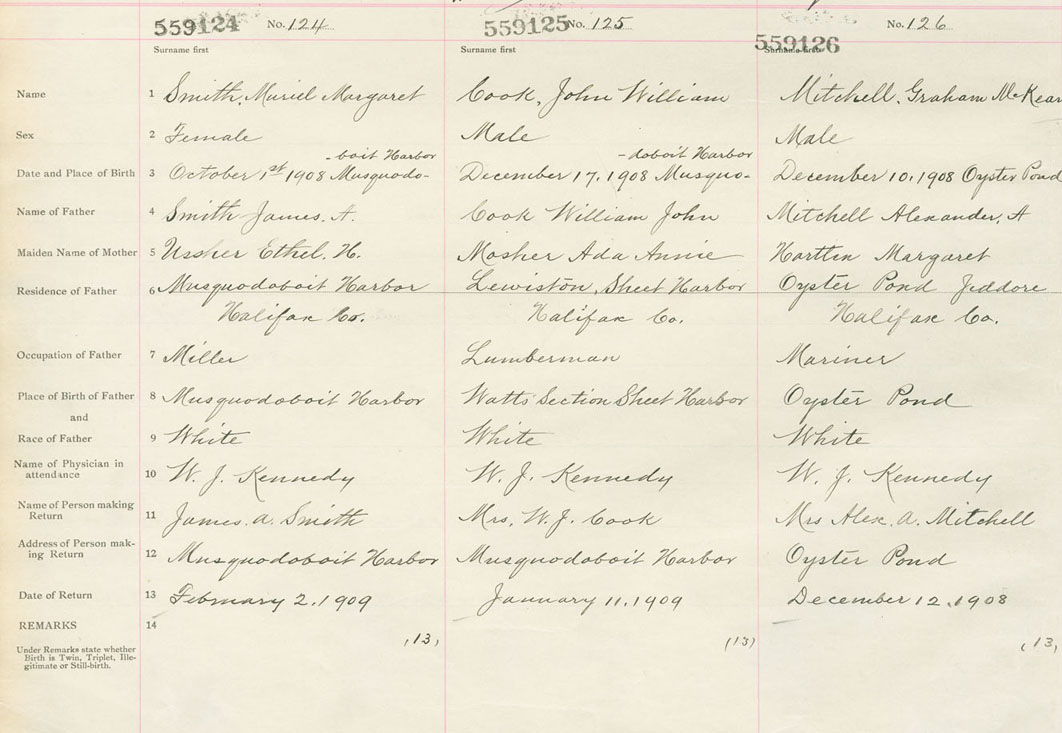 559124 No. 124 559125 No. 125 559126 No. 126
Surname first Surname first Surname first
Name 1 Smith, Muriel Margaret Cook, John William Mitchell, Graham McKean
Sex 2 Female Male Male
-boit Harbor -doboit Harbor
Date and Place of Birth 3 October 1st 1908 Musquodo- December 17, 1908 Musquo- December 10, 1908 Oyster Pond
Name of Father 4 Smith James. A. Cook William John Mitchell Alexander. A
Maiden Name of Mother 5 Ussher Ethel. H. Mosher Ada Annie Harttin Margaret
Residence of Father 6 Musquodoboit Harbor Lewiston, Sheet Harbor Oyster Pond Jeddore
Halifax Co. Halifax Co. Halifax Co.
Occupation of Father 7 Miller Lumberman Mariner
Place of Birth of Father 8 Musquodoboit Harbor Watts Section Sheet Harbor Oyster Pond
and
Race of Father 9 White White White
Name of Physician in
attendance 10 W. J. Kennedy W. J. Kennedy W. J. Kennedy
Name of Person making
Return 11 James. A. Smith Mrs. W. J. Cook Mrs Alex. A. Mitchell
Address of Person mak-
ing Return 12 Musquodoboit Harbor Musquodoboit Harbor Oyster Pond
Date of Return 13 February 2, 1909 January 11, 1909 December 12, 1908
REMARKS 14
(13) (13) (13)
Under Remarks state whether
Birth is Twin, Triplet, Ille-
gitimate or Still-birth.